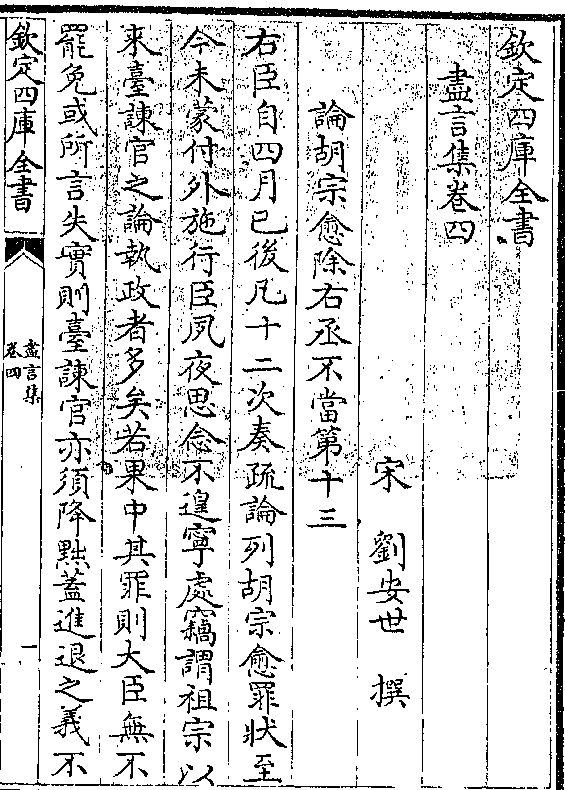 欽定四庫全書
盡言集卷四
宋 劉安世 撰
論胡宗愈除右丞不當第十三
右臣自四月已後凡十二次奏疏論列胡宗愈罪狀至
今未蒙付外施行臣夙夜思念不遑寧處竊謂祖宗以
來臺諫官之論執政者多矣若果中其罪則大臣無不
罷免或所言失實則臺諫官亦須降黜蓋進退之義不
欽定四庫全書
盡言集
卷四
一